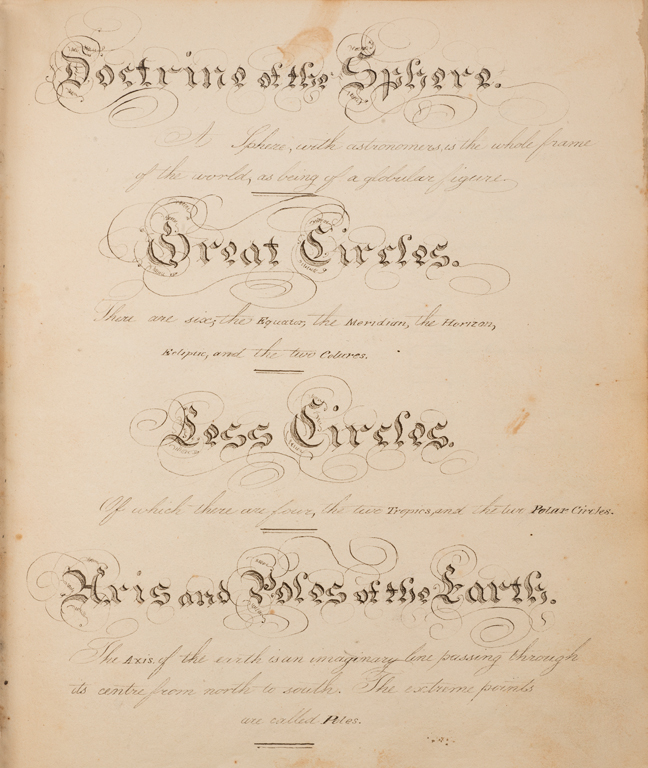 Doctrine of the Sphere.
A Sphere, with astronomers, is the whole frame
of the world, as being of a globular figure.
Great Circles.
There are six; the Equator, the Meridian, the Horizon,
Ecliptic, and the two Colures.
Less Circles.
Of which there are four, the two Tropics, and the two Polar Circles.
Axis and Poles of the Earth.
The Axis. of the earth is an imaginary line passing through
its centre from north to south. The extreme points
are called Poles.